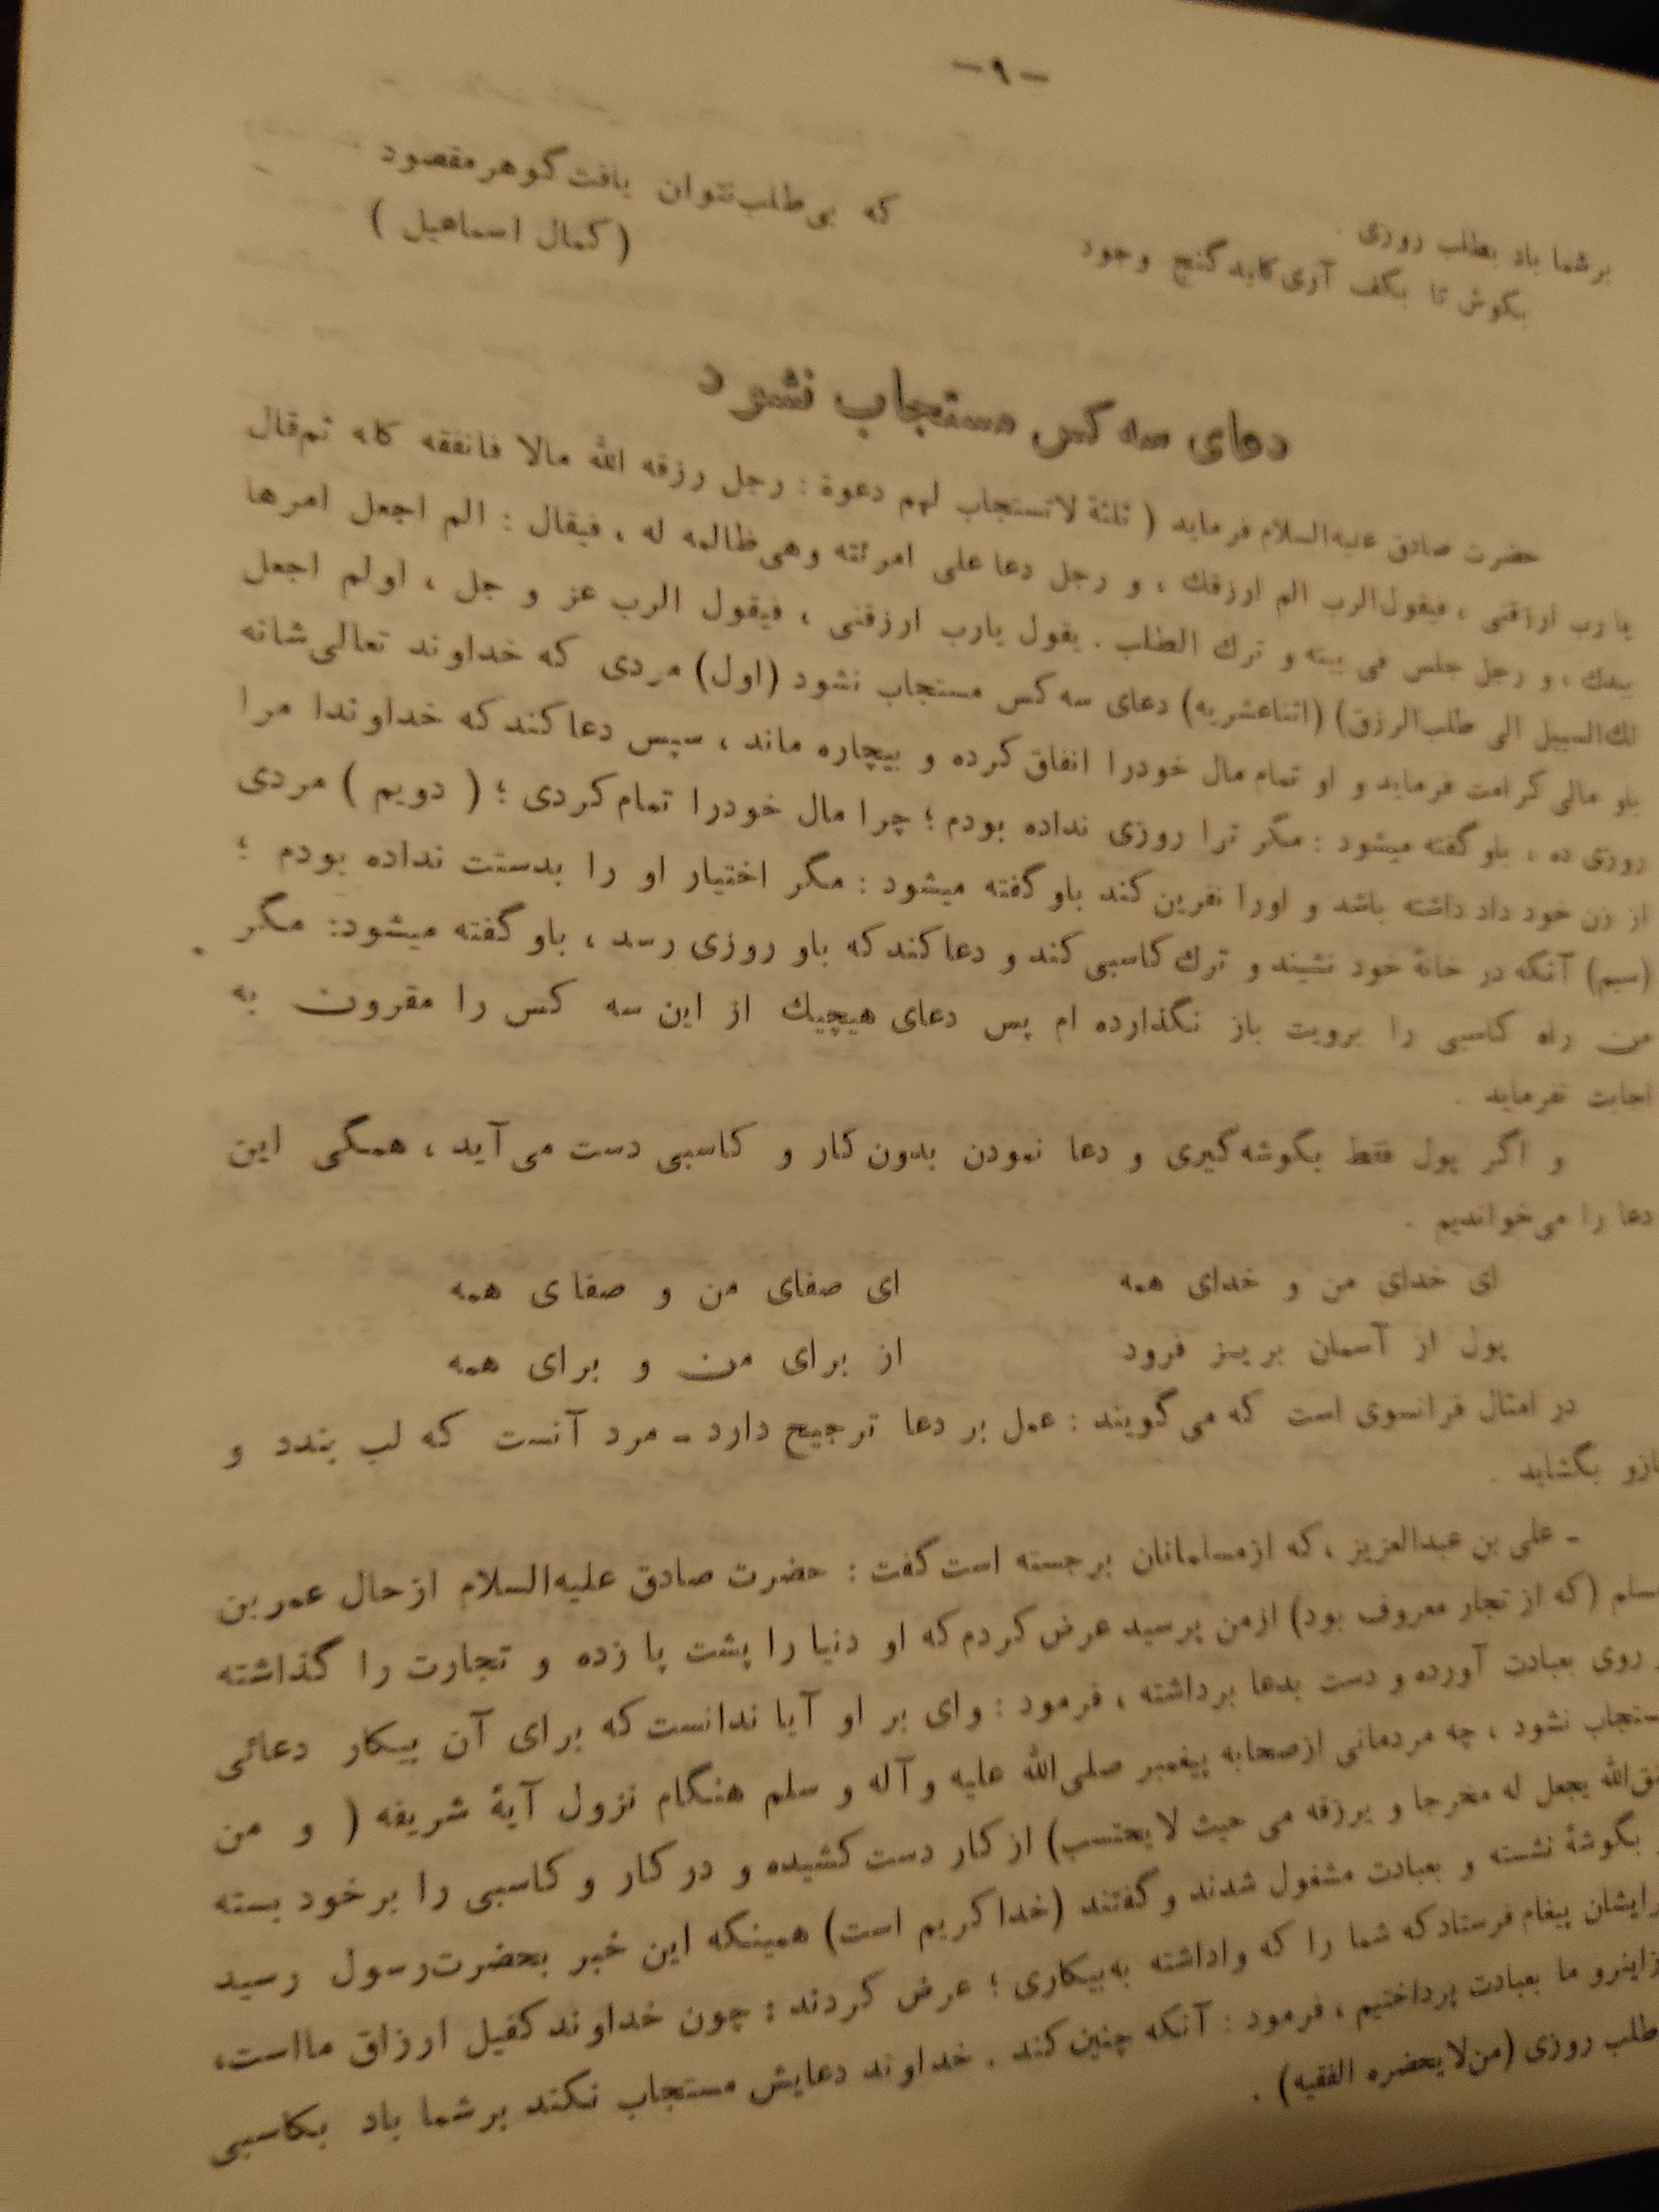 -۹-
برشما باد بطلب روزی.
بکوش تا بکف آری کلید گنج وجود
که بی‌طلب نتوان یافت گوهر مقصود
(کمال اسماعیل)
دعای سه کس مستجاب نشود
حضرت صادق علیه‌السلام فرماید (ثلثة لاتستجاب لهم دعوة : رجل رزقه الله مالا فانفقه کله ثم‌قال
یا رب ارزقنی ، فیقول‌الرب الم ارزقك ، و رجل دعا علی امرئته وهی ظالمه له ، فیقال : الم اجعل امرها
بیدك ، و رجل جلس فی بیته و ترك الطلب . یقول یارب ارزقنی ، فیقول الرب عز و جل ، اولم اجعل
لك‌السبیل الی طلب‌الرزق) (اثناعشریه) دعای سه کس مستجاب نشود (اول) مردی که خداوند تعالی‌شانه
باو مالی کرامت فرماید و او تمام مال خودرا انفاق کرده و بیچاره ماند ، سپس دعا کند که خداوندا مرا
روزی ده ، باو گفته میشود : مگر ترا روزی نداده بودم ؛ چرا مال خودرا تمام کردی ؛ ( دویم ) مردی
از زن خود داد داشته باشد و اورا نفرین کند باو گفته میشود : مگر اختیار او را بدستت نداده بودم ؛
(سیم) آنکه در خانهٔ خود نشیند و ترك کاسبی کند و دعا کند که باو روزی رسد ، باو گفته میشود: مگر
من راه کاسبی را برویت باز نگذارده ام پس دعای هیچیك از این سه کس را مقرون به
اجابت نفرماید .
و اگر پول فقط بگوشه‌گیری و دعا نمودن بدون کار و کاسبی دست می‌آید ، همگی این
دعا را می‌خواندیم .
ای خدای من و خدای همه
ای صفای من و صفای همه
پول از آسمان بریز فرود
از برای من و برای همه
در امثال فرانسوی است که می‌گویند : عمل بر دعا ترجیح دارد - مرد آنست که لب بندد و
بازو بگشاید .
- علی بن عبدالعزیز ، که ازمسلمانان برجسته است گفت : حضرت صادق علیه‌السلام ازحال عمربن
مسلم (که از تجار معروف بود) ازمن پرسید عرض کردم که او دنیا را پشت پا زده و تجارت را گذاشته
روی بعبادت آورده و دست بدعا برداشته ، فرمود : وای بر او آیا ندانست که برای آن بیکار دعائی
مستجاب نشود ، چه مردمانی ازصحابه پیغمبر صلی‌الله علیه و آله و سلم هنگام نزول آیهٔ شریفه ( و من
یتق‌الله یجعل له مخرجا و یرزقه می حیث لایحتسب) از کار دست کشیده و در کار و کاسبی را برخود بسته
بگوشهٔ نشسته و بعبادت مشغول شدند و گفتند (خدا کریم است) همینکه این خبر بحضرت‌رسول رسید
برایشان پیغام فرستاد که شما را که واداشته به‌بیکاری ؛ عرض کردند : چون خداوند کفیل ارزاق مااست،
ازاینرو ما بعبادت پرداختیم ، فرمود : آنکه چنین کند . خداوند دعایش مستجاب نکند برشما باد بکاسبی
طلب روزی (من‌لایحضره الفقیه) .